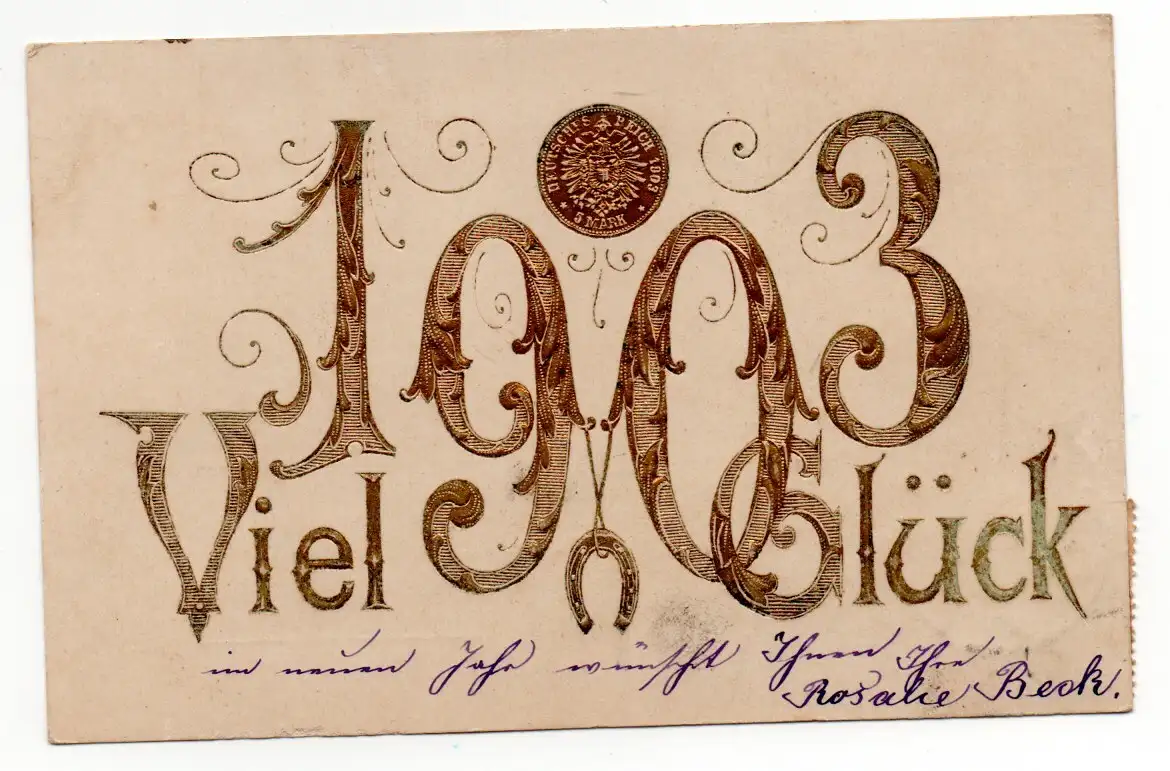 DEUTSCHES REICH 1903
* 5 MARK *
1903
Viel Glück
im neuen Jahr wünscht Ihnen Ihre
Rosalie Beck.